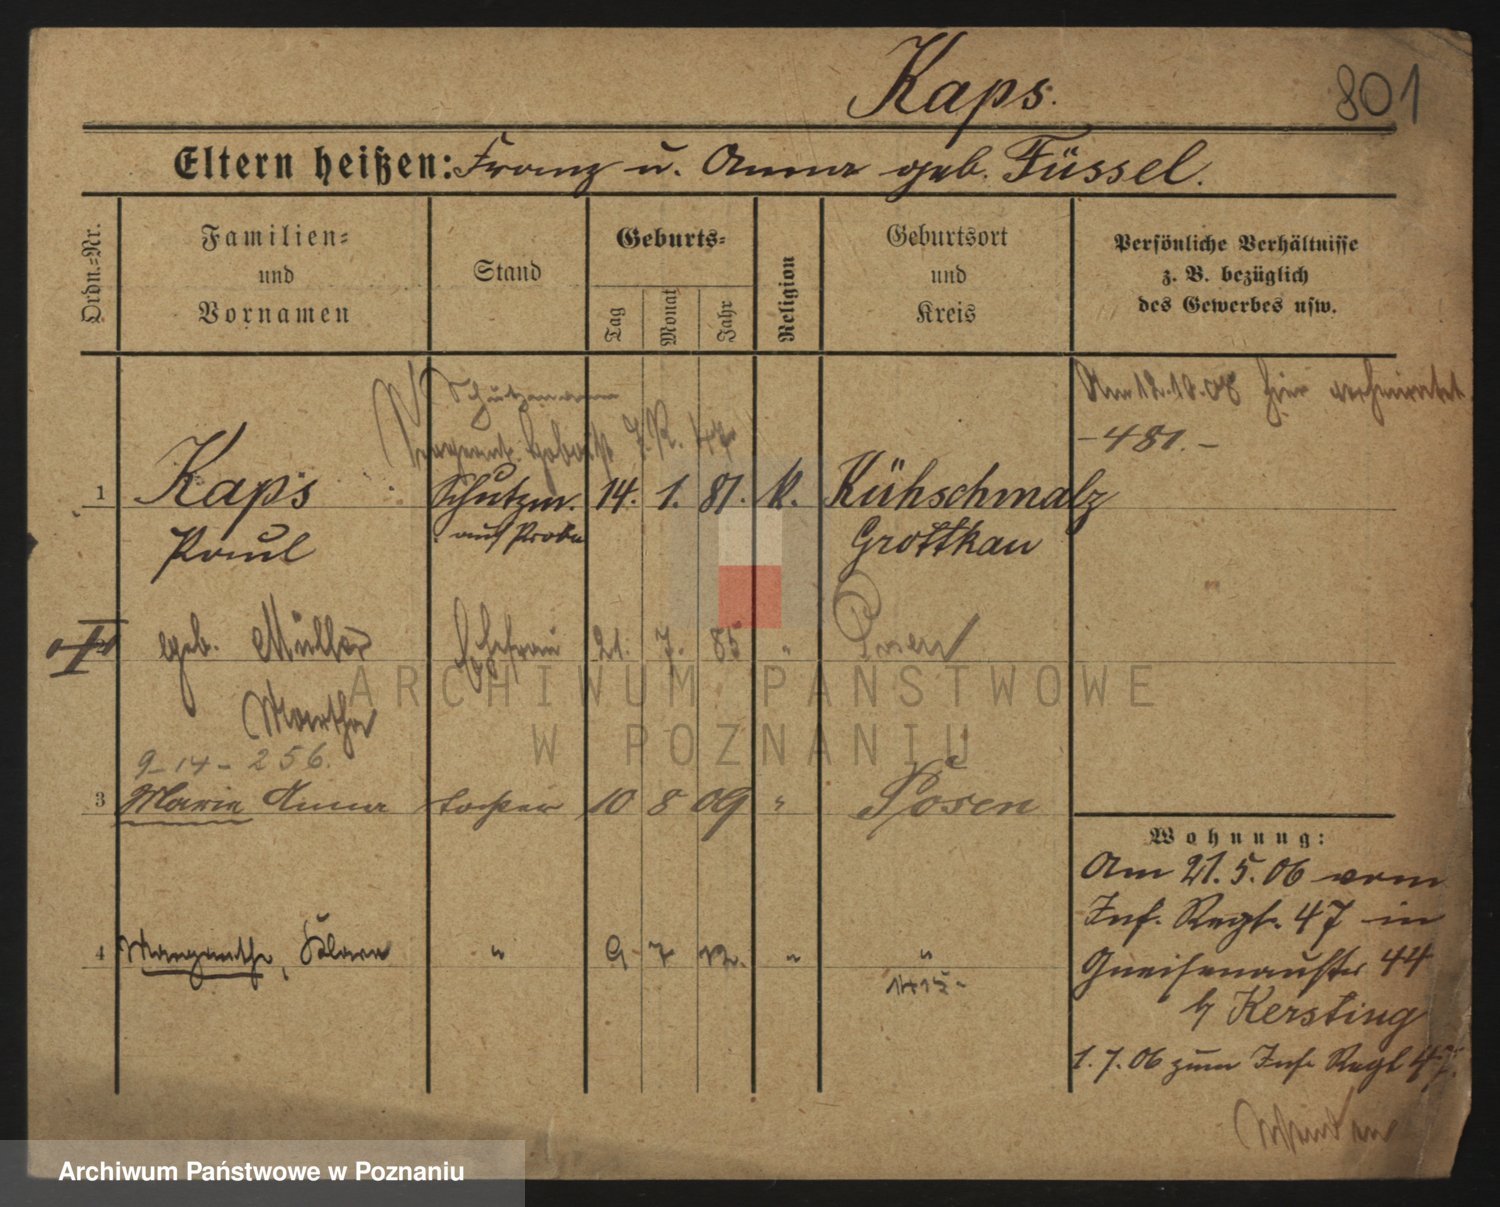 Kaps.
801
Eltern heißen: Franz u. Anna geb. Füssel.
Ordn.-Nr.
Familien-
und
Vornamen
Stand
Geburts-
Tag
Monat
Jahr
Religion
Geburtsort
und
Kreis
Persönliche Verhältnisse
z. B. bezüglich
des Gewerbes usw.
Schutzmann
J. R. 47
Am 12.10.08 hier verheiratet
-481.-
1 Kaps Schutzm. 14. 1. 81. k. Kühschmalz
Paul auf Probe Grottkau
geb. Müller Ehefrau 21. 7. 85 " Posen
Martha
9-14-256.
3 Marie Anna Tochter 10 8 09 " Posen
4 Margarethe, Klara " 9 7 12. " "
1415-
Wohnung:
Am 21.5.06 vom
Inf. Regt. 47 in
Gneisenaustr 44
b/ Kersting
1.7.06 zum Inf. Regt 47.
ARCHIWUM PAŃSTWOWE
W POZNANIU
Archiwum Państwowe w Poznaniu